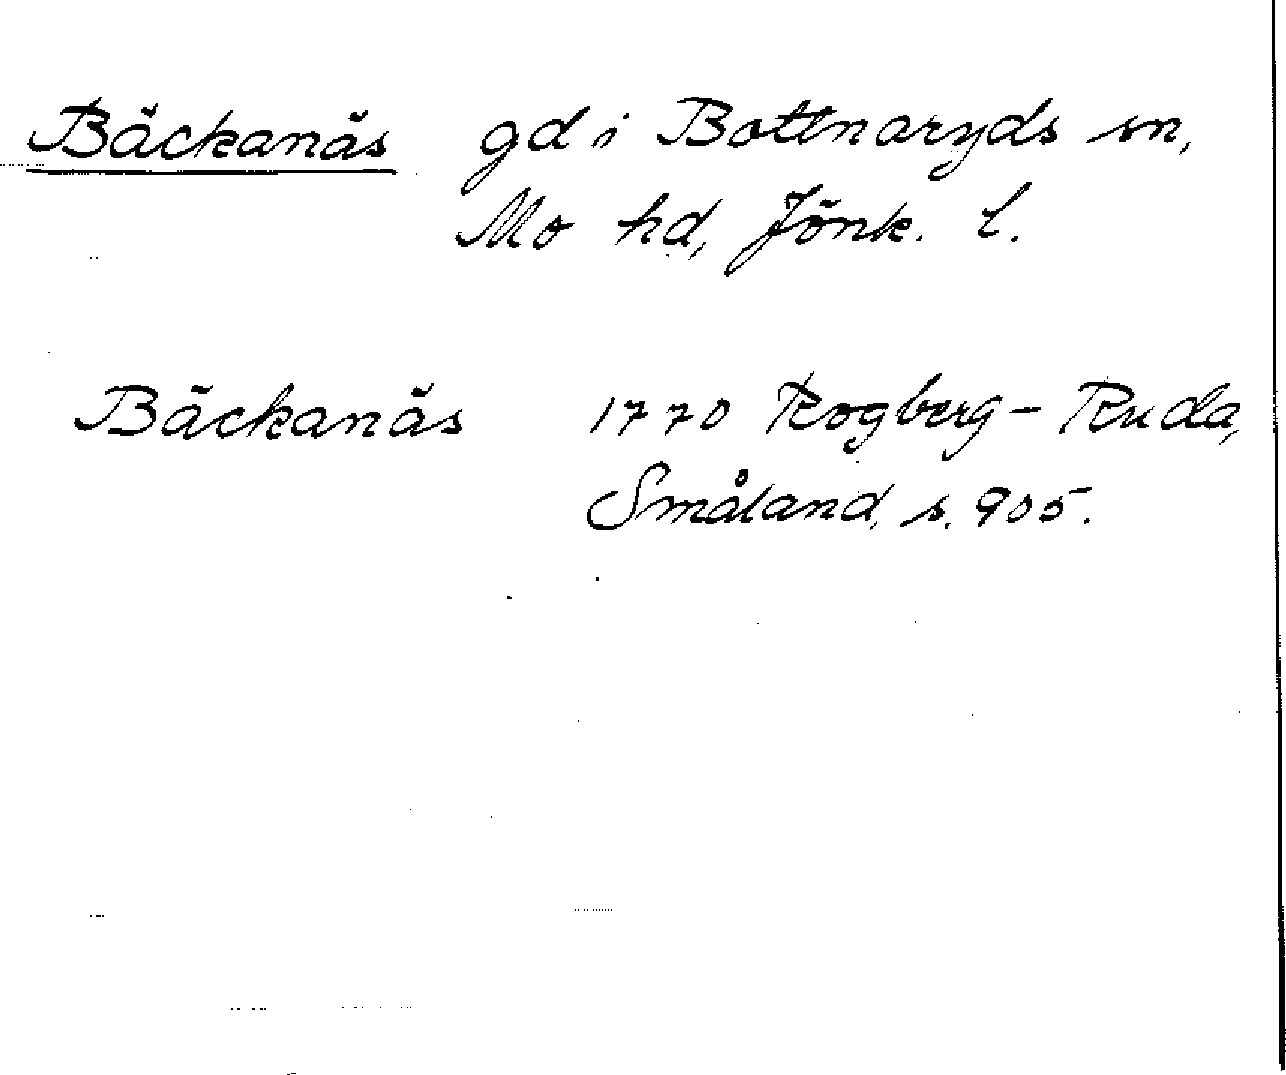 Bäckanäs gd i Bottnaryds sn,
Mo hd, Jönk. l.
Bäckanäs 1770 Rogberg-Ruda,
Småland, s. 905.